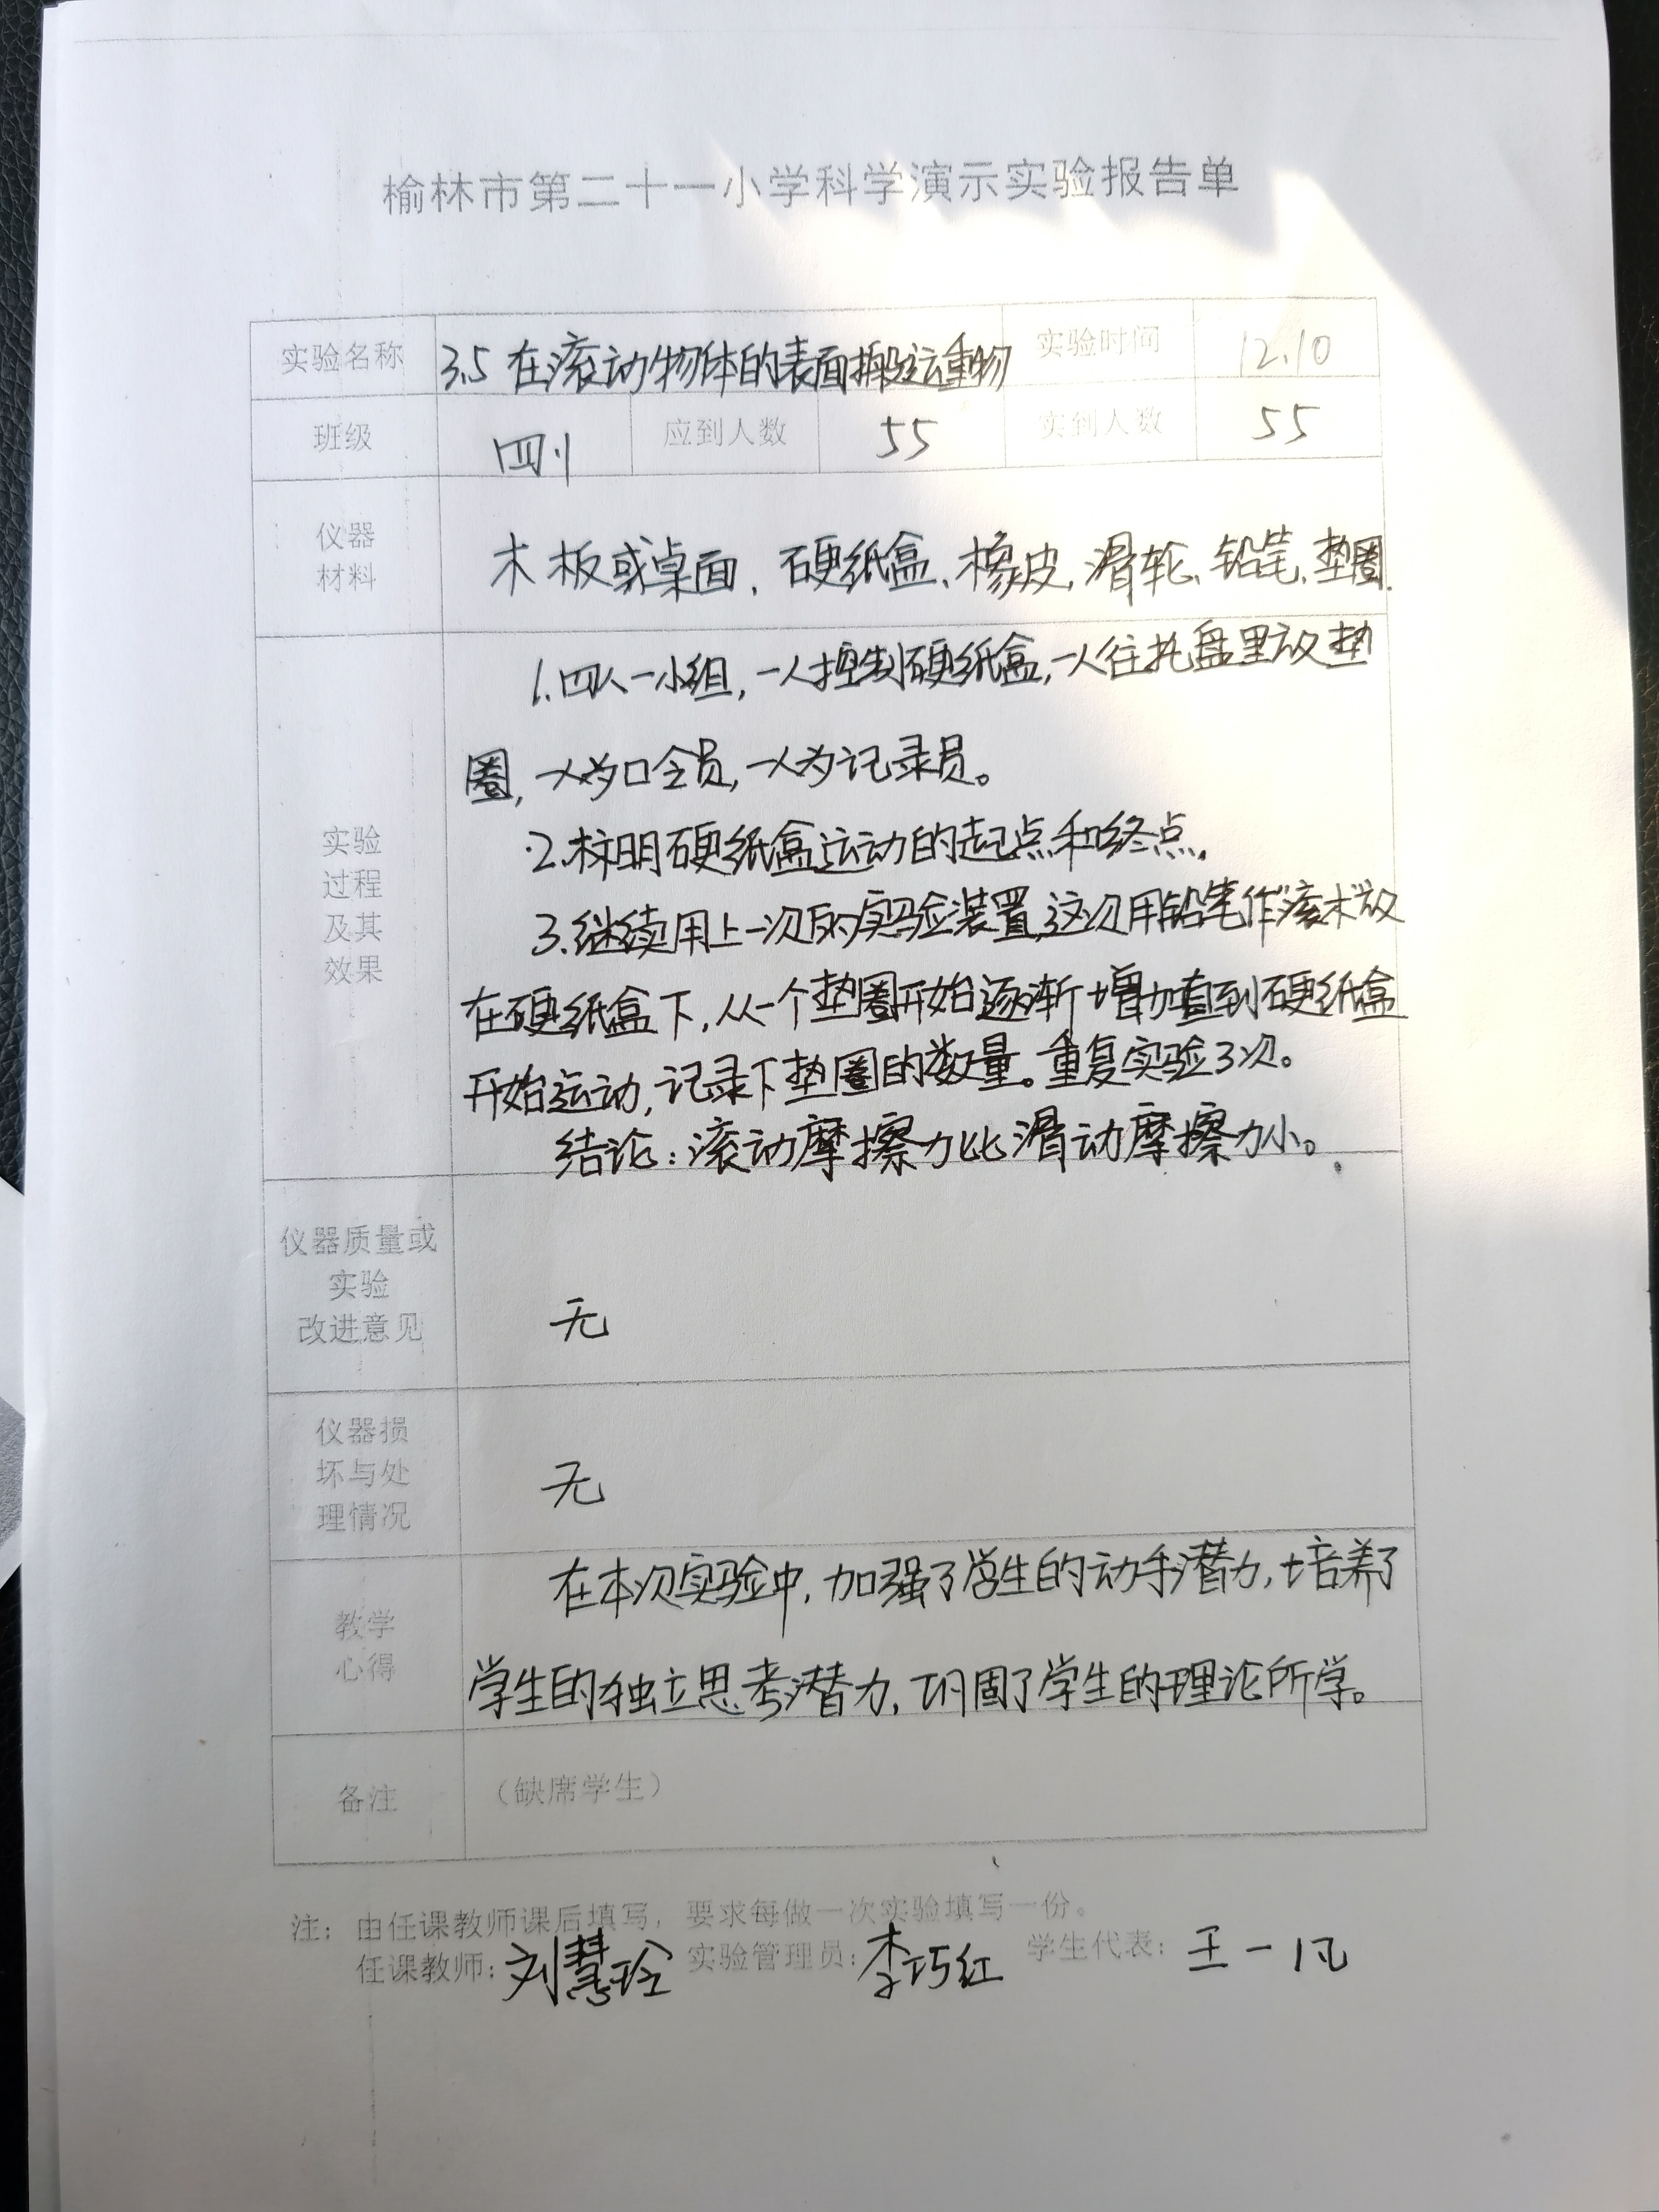 榆林市第二十一小学科学演示实验报告单
实验名称 3.5 在滚动物体的表面搬运重物 实验时间 12.10
班级 四.1 应到人数 55 实到人数 55
仪器
材料
木板或桌面、硬纸盒、橡皮、滑轮、铅笔、垫圈.
实验
过程
及其
效果
1.四人一小组,一人控制硬纸盒,一人往托盘里放垫
圈,一人为口令员,一人为记录员。
2.标明硬纸盒运动的起点和终点.
3.继续用上一次的实验装置,这次用铅笔作"滚木"放
在硬纸盒下,从一个垫圈开始逐渐增加直到硬纸盒
开始运动,记录下垫圈的数量。重复实验3次。
结论:滚动摩擦力比滑动摩擦力小。
仪器质量或
实验
改进意见
无
仪器损
坏与处
理情况
无
教学
心得
在本次实验中,加强了学生的动手潜力,培养了
学生的独立思考潜力,巩固了学生的理论所学。
备注 （缺席学生）
注：由任课教师课后填写，要求每做一次实验填写一份。
任课教师：刘慧玲 实验管理员：李巧红 学生代表：王一凡